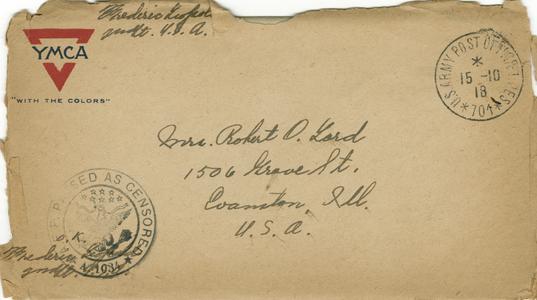 Frederic
gndlt. U.S.A.
YMCA
"WITH THE COLORS"
U.S. ARMY POST OFFICE
15-10
18
*704*
Mrs. Robert O. Lord
1506 Grove St.
Evanston, Ill.
U.S.A.
PASSED AS CENSORED
O.K.
A.1934
Frederic